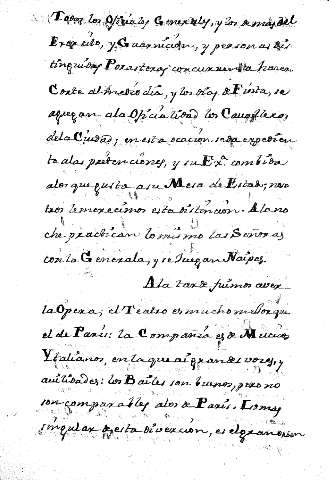 Todos los Oficiales Generales, y los demas del
Exercito, y Guarnicion, y personas dis
tinguidas Forasteros concurren a hacer
Corte al medio dia, y los dias de Fiesta, se
agregan ala Oficialidad los Cavalleros
dela Ciudad; en esta ocacion se da expedien
te alas pretenciones, y su Exª. combida
alos que gusta a su Mesa de Estado; noso
tros lemerecimos esta distincion. Ala no
che practican lo mismo las Señoras
con la Generala, y se Juegan Naipes.
Ala tarde fuimos aver
la Opera; el Teatro es mucho mejor que
el de Paris: la Compañia es de Mucicos
Ytalianos, en la que ai grandes voces, y
avilidades: los Bailes son buenos, pero no
son comparables alos de Paris. Lo mas
singular de esta diverción, es el gran